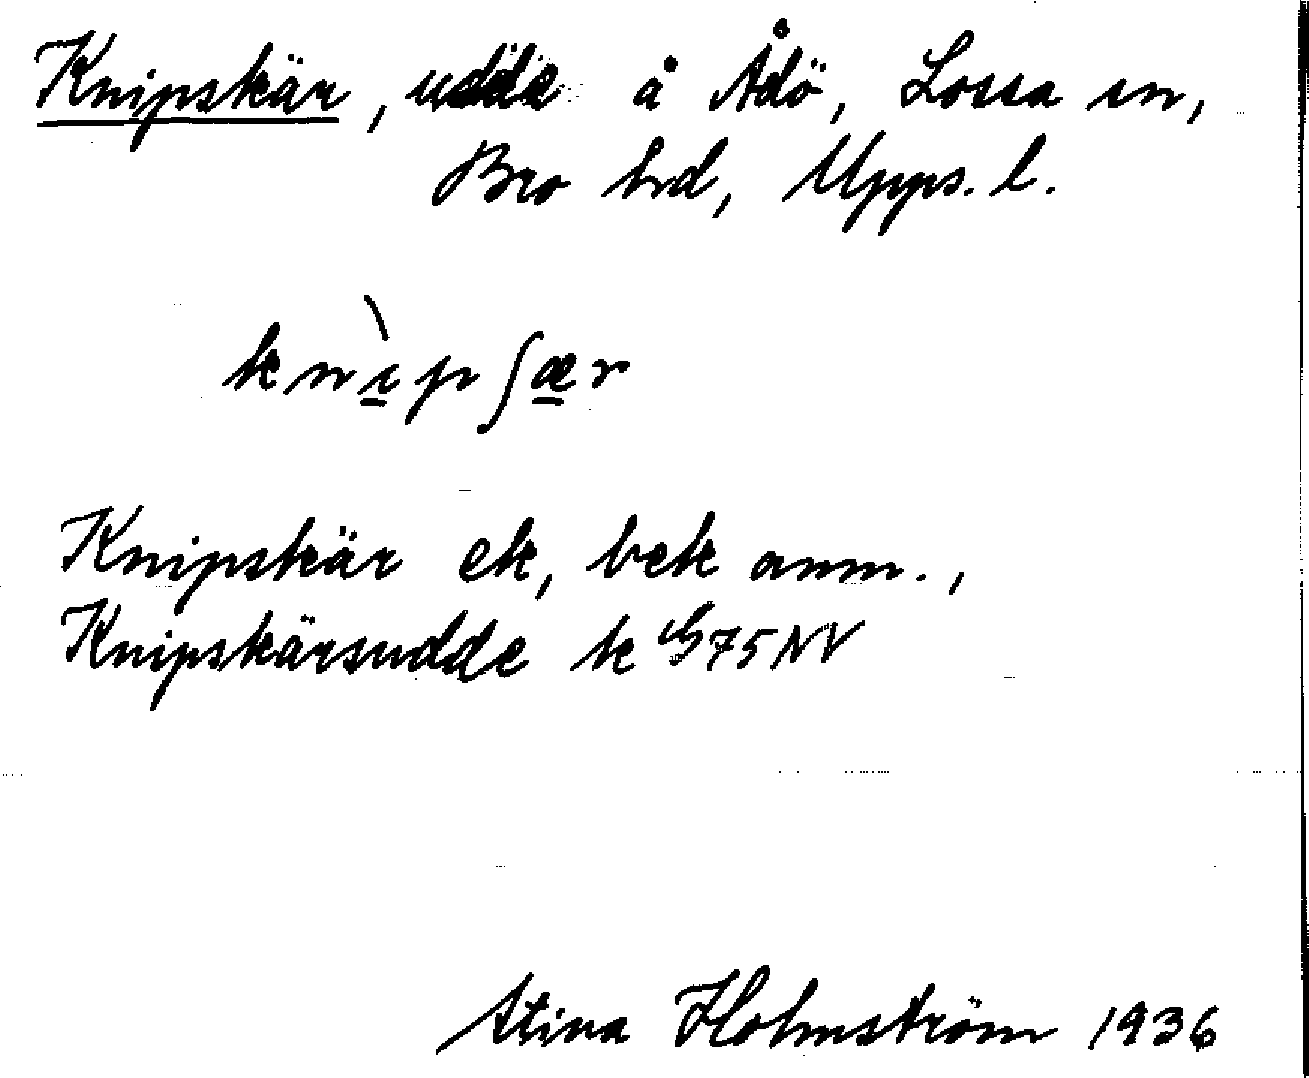 Knipskär, udde å Ådö, Lossa sn,
Bro hd, Upps. l.
knìpʃær
Knipskär ek, bek anm.,
Knipskärsudde k G75NV
Stina Holmström 1936